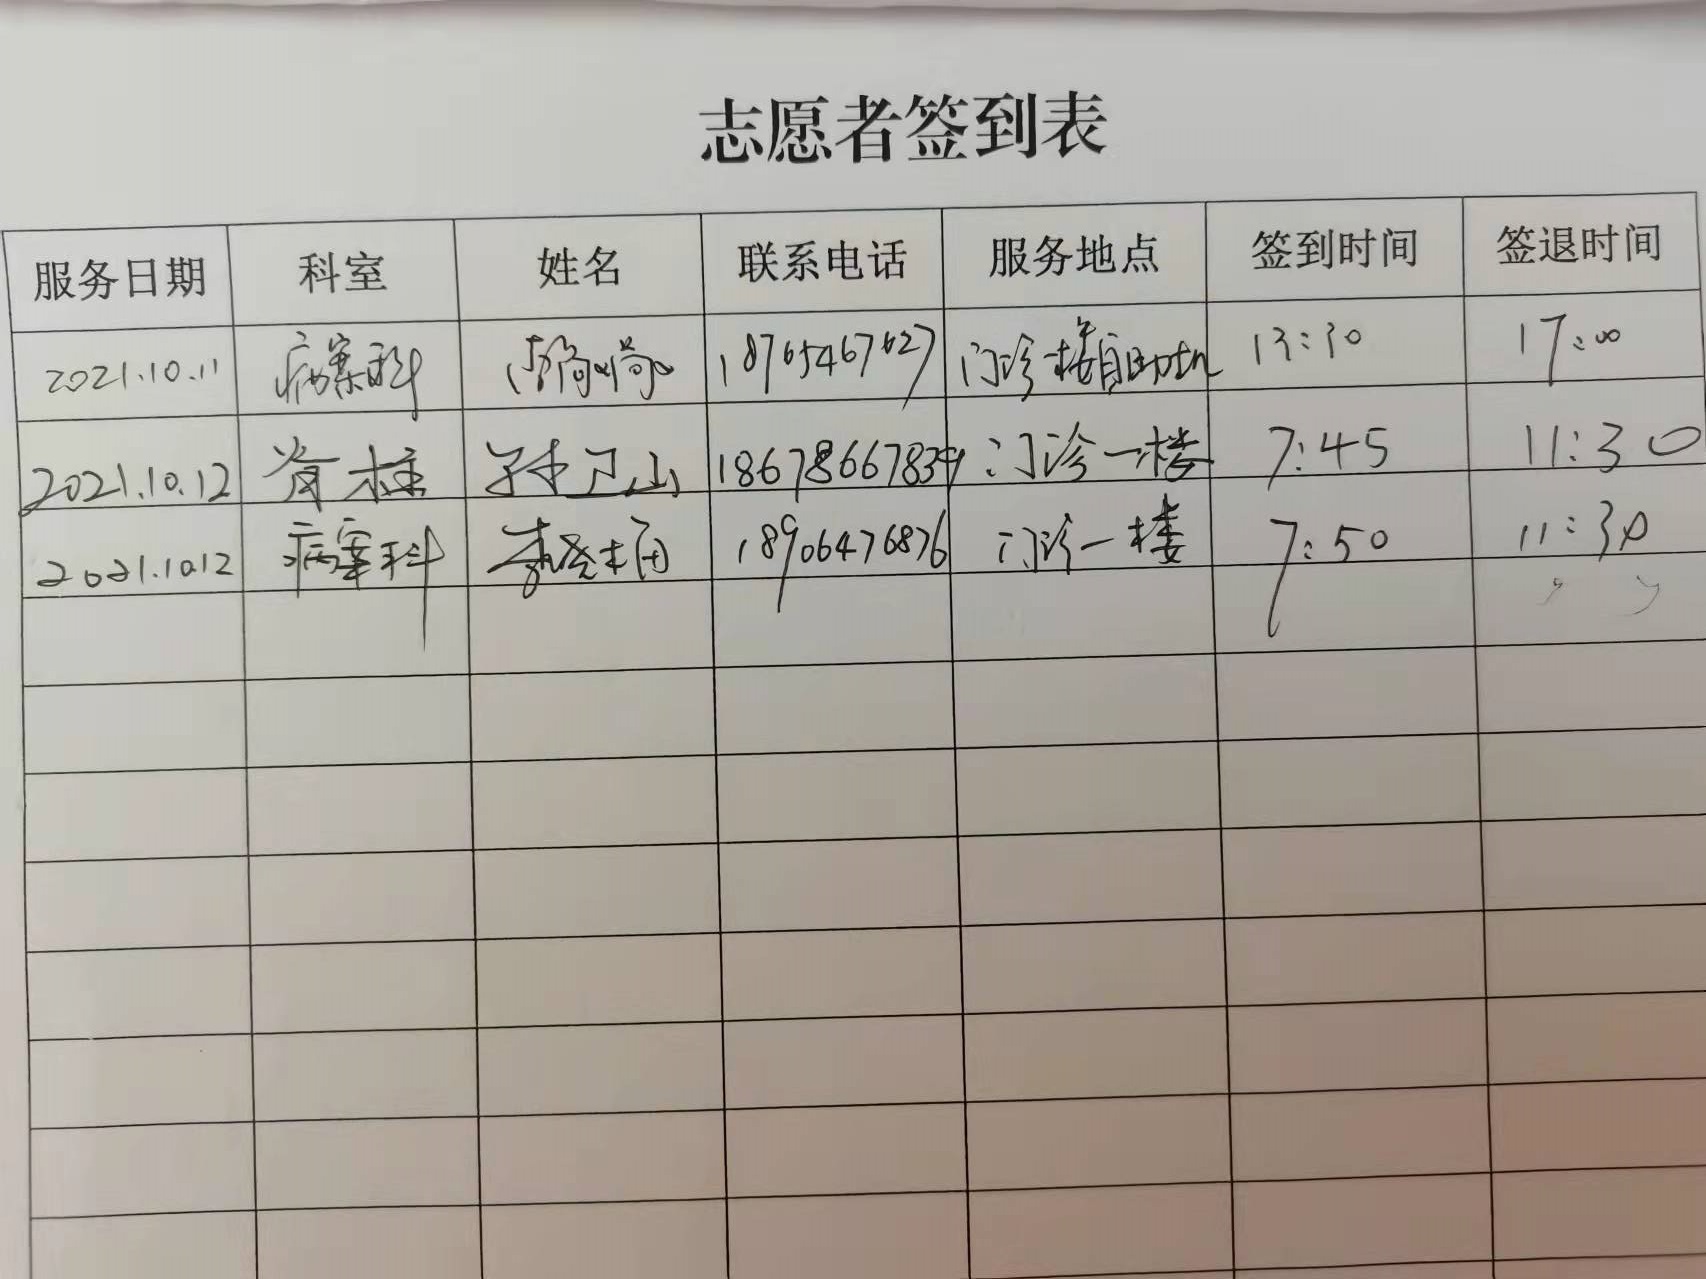 志愿者签到表
服务日期 科室 姓名 联系电话 服务地点 签到时间 签退时间
2021.10.11 病案科 18765467627 门诊一楼自助机 13:30 17:00
2021.10.12 脊柱 孙卫山 18678667839 门诊一楼 7:45 11:30
2021.10.12 病案科 18906476876 门诊一楼 7:50 11:30